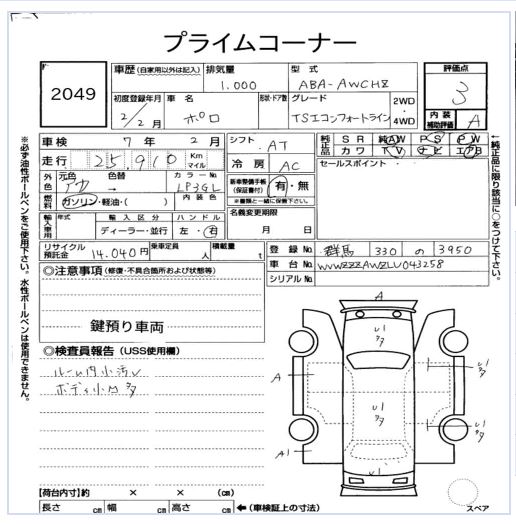 プライムコーナー
2049
車歴(自家用以外は記入)
排気量
1.000
型式
ABA-AWCHZ
評価点
3
初度登録年月
2/2月
車名
ポロ
形状・ドア数
グレード
TSIコンフォートライン
2WD
・
4WD
内装
補助評価
A
※必ず油性ボールペンをご使用下さい。水性ボールペンは使用できません。
車検
7年 2月
シフト
AT
純正品
SR 純AW PS PW
カワ TV ナビ エアB
←純正品に限り該当に○をつけて下さい。
走行
25,910
Km
マイル
冷房
AC
セールスポイント
外色
元色
アカ
色替
→
カラーNo
LP3GL
新車整備手帳
(保証書付)
有・無
※書類と一緒に保管下さい。
燃料
ガソリン・軽油・( )
内装色
名義変更期限
月 日
輸入車用
年式
輸入区分
ディーラー・並行
ハンドル
左・右
リサイクル
預託金
14.040円
乗車定員
人
積載量
t
登録No.
群馬 330 の 3950
車台No.
WVWZZZAWZLU043258
シリアルNo.
◎注意事項(修復・不具合箇所および状態等)
鍵預り車両
◎検査員報告(USS使用欄)
ルーム内小汚レ
ボディ小キズ多
A
U1
多
U1
A
U1
多
U1
多
A1
U1
【荷台内寸】約 × × (cm)
長さ cm 幅 cm 高さ cm ←(車検証上の寸法)
スペア